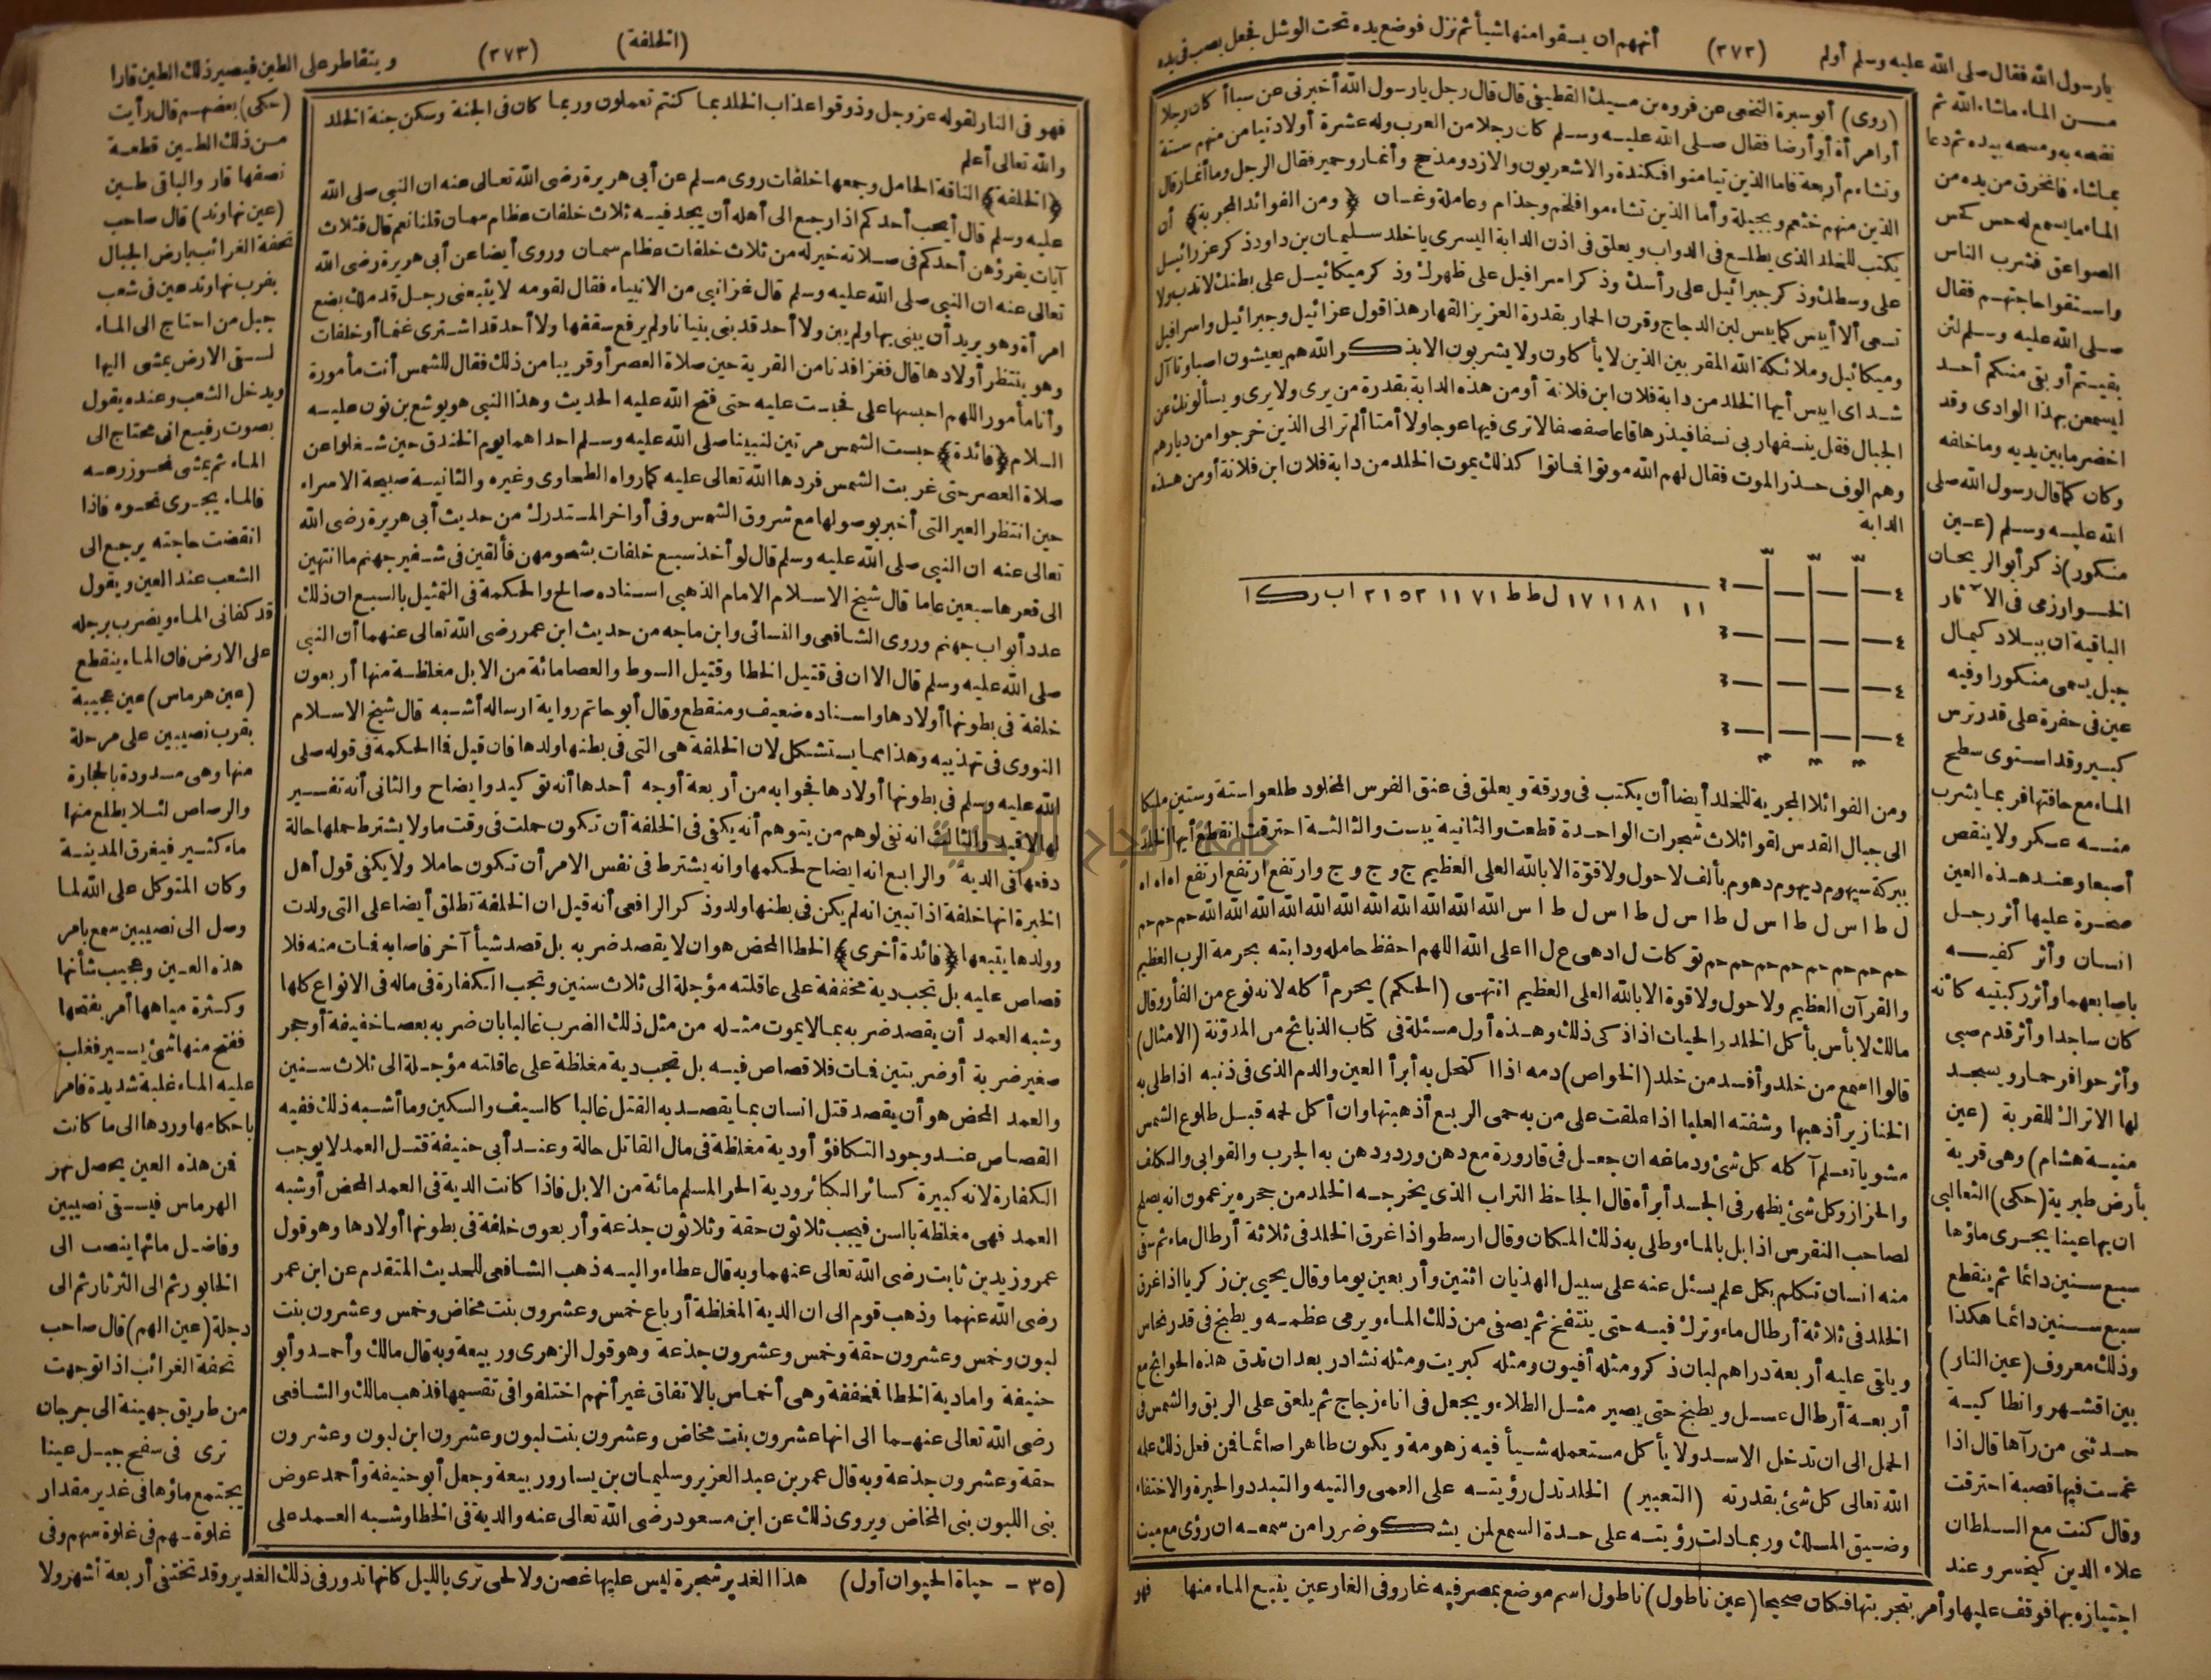 يارسول الله فقال صلى الله عليه وسلم أولم (٢٧٢) أنههم ان يسقوا منها شيأ ثم نزل فوضع يده تحت الوشل فجعل يصب فى يده
من الماء ماشاء الله ثم
نضحه به ومسحه بيده ثم دعا
بماشاء فانخرق من يده من
الماء مايسمع له حس كحس
الصواعق فشرب الناس
واستقوا حاجتهم فقال
صلى الله عليه وسلم لئن
بقيتم أو بقى منكم أحد
ليسمعن بهذا الوادى وقد
اخضر مابين يديه وماخلفه
وكان كما قال رسول الله صلى
الله عليه وسلم (عين
منكور) ذكر أبو الريحان
الخوارزمى فى الآثار
الباقية ان ببلاد كيمال
جبل يسمى منكورا وفيه
عين فى حفرة على قدر ترس
كبير وقد استوى سطح
الماء مع حافتها فربما يشرب
منه عسكر ولا ينقص
أصبعا وعند هذه العين
صخرة عليها أثر رجل
انسان وأثر كفيه
باصابعهما وأثر ركبتيه كأنه
كان ساجدا وأثر قدم صبى
وأثر حوافر حمار ويسجد
لها الاتراك للقربة (عين
منية هشام) وهى قرية
بأرض طبرية (حكى) الثعالبى
ان بها عينا يجرى ماؤها
سبع سنين دائما ثم ينقطع
سبع سنين دائما هكذا
وذلك معروف (عين النار)
بين اقشهر وانطاكية
حدثنى من رآها قال اذا
غمست فيها قصبة احترقت
وقال كنت مع السلطان
علاء الدين كيخسرو عند
اجتيازه بها فوقف عليها وأمر بتجربتها فكان صحيحا (عين ناطول) ناطول اسم موضع بمصر فيه غار وفى الغار عين ينبع الماء منها فهو
(روى) أبو سبرة النخعى عن فروه بن مسيك القطيفى قال قال رجل يارسول الله أخبرنى عن سبأ أ كان رجلا
أو امرأة أو أرضا فقال صلى الله عليه وسلم كان رجلا من العرب وله عشرة أولاد تيامن منهم ستة
وتشاءم أربعة فاما الذين تيامنوا فكندة والاشعريون والازد ومذحج وأنمار وحمير فقال الرجل وما أنمار قال
الذين منهم خثعم وبجيلة وأما الذين تشاءموا فلخم وجذام وعاملة وغسان ﴿ ومن الفوائد المجربة﴾ أن
يكتب للخلد الذى يطلع فى الدواب ويعلق فى اذن الدابة اليسرى ياخلد سليمان بن داود ذكر عزرائيل
على وسطك وذكر جبرائيل على رأسك وذكر اسرافيل على ظهرك وذكر ميكائيل على بطنك لاتدب ولا
تسعى ألا أيبس كما يبس لبن الدجاج وقرن الحمار بقدرة العزيز القهار هذا قول عزائيل وجبرائيل واسرافيل
وميكائيل وملائكة الله المقربين الذين لا يأكلون ولا يشربون الا بذكر الله هم يعيشون اصباوتا آل
شداى ايبس أيها الخلد من دابة فلان ابن فلانة أو من هذه الدابة بقدرة من يرى ولا يرى ويسألونك عن
الجبال فقل ينسفها ربى نسفا فيذرها قاعا صفصفا لاترى فيها عوجا ولا أمتا ألم تر الى الذين خرجوا من ديارهم
وهم الوف حذر الموت فقال لهم الله موتوا فماتوا كذلك يموت الخلد من دابة فلان ابن فلانة أو من هذه
الدابة
ومن الفوائد المجربة للخلد أيضا أن يكتب فى ورقة ويعلق فى عنق الفرس المخلود طلعوا ستة وستين مليكا
الى جبال القدس لقوا ثلاث شجرات الواحدة قطعت والثانية يبست والثالثة احترقت انقطع أيها الخلد
ببركة سيهوم ديهوم دهوم بألف لاحول ولا قوّة الا بالله العلى العظيم ج وج وج وارتفع ارتفع ارتفع اه اه اه
ل ط ا س ل ط ا س ل ط ا س ل ط ا س ل ط ا س الله الله الله الله الله الله الله الله الله الله حم حم حم
حم حم حم حم حم حم توكلت ل ا د ه ى ع ل ا على الله اللهم احفظ حامله ودابته بحرمة الرب العظيم
والقرآن العظيم ولا حول ولا قوة الا بالله العلى العظيم انتهى (الحكم) يحرم أكله لانه نوع من الفأر وقال
مالك لا بأس بأكل الخلد والحيات اذا ذكى ذلك وهذه أول مسئلة فى كتاب الذبائح من المدوّنة (الامثال)
قالوا اسمع من خلد وأفسد من خلد (الخواص) دمه اذا اكتحل به أبرأ العين والدم الذى فى ذنبه اذا طلى به
الخنازير أذهبها وشفته العليا اذا علقت على من به حمى الربع أذهبتها وان أكل لحمه قبل طلوع الشمس
مشويا تعلم آكله كل شئ ودماغه ان جعل فى قارورة مع دهن ورد ودهن به الجرب والقوابى والكلف
والحزاز وكل شئ يظهر فى الجسد أبرأه قال الجاحظ التراب الذى يخرجه الخلد من جحره يزعمون انه يصلح
لصاحب النقرس اذا بل بالماء وطلى به ذلك المكان وقال ارسطو اذا غرق الخلد فى ثلاثة أرطال ماء ثم سقى
منه انسان تكلم بكل علم يسئل عنه على سبيل الهذيان اثنين وأربعين يوما وقال يحيى بن زكريا اذا غرق
الخلد فى ثلاثة أرطال ماء وترك فيه حتى ينتفخ ثم يصفى من ذلك الماء ويرمى عظمه ويطبخ فى قدر نحاس
ويلقى عليه أربعة دراهم لبان ذكر ومثله أفيون ومثله كبريت ومثله نشادر بعد ان تدق هذه الحوائج مع
أربعة أرطال عسل ويطبخ حتى يصير مثل الطلاء ويجعل فى اناء زجاج ثم يلعق على الريق والشمس فى
الحمل الى ان تدخل الاسد ولا يأكل مستعمله شيأ فيه زهومة ويكون طاهرا صائما فمن فعل ذلك علمه
الله تعالى كل شئ بقدرته (التعبير) الخلد تدل رؤيته على العمى والتيه والتبدد والحيرة والاختفاء
وضيق المسلك وربما دلت رؤيته على حدة السمع لمن يشكو ضررا من سمعه ان رؤى مع ميت
(الخلفة) (٢٧٣) ويتقاطر على الطين فيصير ذلك الطين قارا
فهو فى النار لقوله عز وجل وذوقوا عذاب الخلد بما كنتم تعملون وربما كان فى الجنة وسكن جنة الخلد
والله تعالى أعلم
﴿الخلفة﴾ الناقة الحامل وجمعها خلفات روى مسلم عن أبى هريرة رضى الله تعالى عنه ان النبى صلى الله
عليه وسلم قال أيحب أحدكم اذا رجع الى أهله أن يجد فيه ثلاث خلفات عظام سمان قلنا نعم قال فثلاث
آيات يقرؤهن أحدكم فى صلاته خير له من ثلاث خلفات عظام سمان وروى أيضا عن أبى هريرة رضى الله
تعالى عنه ان النبى صلى الله عليه وسلم قال غزا نبى من الانبياء فقال لقومه لا يتبعنى رجل قد ملك بضع
امرأة وهو يريد أن يبنى بها ولم يبن ولا أحد قد بنى بنيانا ولم يرفع سقفها ولا أحد قد اشترى غنما أو خلفات
وهو ينتظر أولادها قال فغزا فدنا من القرية حين صلاة العصر أو قريبا من ذلك فقال للشمس أنت مأمورة
وأنا مأمور اللهم احبسها على فحبست عليه حتى فتح الله عليه الحديث وهذا النبى هو يوشع بن نون عليه
السلام ﴿فائدة﴾ حبست الشمس مرتين لنبينا صلى الله عليه وسلم احداهما يوم الخندق حين شغلوا عن
صلاة العصر حتى غربت الشمس فردها الله تعالى عليه كما رواه الطحاوى وغيره والثانية صبيحة الاسراء
حين انتظر العير التى أخبر بوصولها مع شروق الشمس وفى أواخر المستدرك من حديث أبى هريرة رضى الله
تعالى عنه ان النبى صلى الله عليه وسلم قال لو أخذ سبع خلفات بشحومهن فألقين فى شفير جهنم ما انتهين
الى قعرها سبعين عاما قال شيخ الاسلام الامام الذهبى اسناده صالح والحكمة فى التمثيل بالسبع ان ذلك
عدد أبواب جهنم وروى الشافعى والنسائى وابن ماجه من حديث ابن عمر رضى الله تعالى عنهما أن النبى
صلى الله عليه وسلم قال الا ان فى قتيل الخطا وقتيل السوط والعصا مائة من الابل مغلظة منها أربعون
خلفة فى بطونها أولادها واسناده ضعيف ومنقطع وقال أبو حاتم رواية ارساله أشبه قال شيخ الاسلام
النووى فى تهذيبه وهذا مما يستشكل لان الخلفة هى التى فى بطنها ولدها فان قيل فما الحكمة فى قوله صلى
الله عليه وسلم فى بطونها أولادها فجوابه من أربعة أوجه أحدها أنه توكيد وايضاح والثانى أنه تفسير
لها لا قيد والثالث انه نفى لوهم من يتوهم أنه يكفى فى الخلفة أن تكون حملت فى وقت ما ولا يشترط حملها حالة
دفعها فى الدية والرابع انه ايضاح لحكمها وانه يشترط فى نفس الامر أن تكون حاملا ولا يكفى قول أهل
الخبرة انها خلفة اذا تبين انه لم يكن فى بطنها ولد وذكر الرافعى أنه قيل ان الخلفة تطلق أيضا على التى ولدت
وولدها يتبعها ﴿فائدة أخرى﴾ الخطا المحض هو ان لا يقصد ضربه بل قصد شيأ آخر فاصابه فمات منه فلا
قصاص عليه بل تجب دية مخففة على عاقلته مؤجلة الى ثلاث سنين وتجب الكفارة فى ماله فى الانواع كلها
وشبه العمد أن يقصد ضربه بما لا يموت مثله من مثل ذلك الضرب غالبا بان ضربه بعصا خفيفة أو حجر
صغير ضربة أو ضربتين فمات فلا قصاص فيه بل تجب دية مغلظة على عاقلته مؤجلة الى ثلاث سنين
والعمد المحض هو أن يقصد قتل انسان بما يقصد به القتل غالبا كالسيف والسكين وما أشبه ذلك ففيه
القصاص عند وجود التكافؤ أو دية مغلظة فى مال القاتل حالة وعند أبى حنيفة قتل العمد لا يوجب
الكفارة لانه كبيرة كسائر الكبائر ودية الحر المسلم مائة من الابل فاذا كانت الدية فى العمد المحض أو شبه
العمد فهى مغلظة بالسن فيجب ثلاثون حقة وثلاثون جذعة وأربعون خلفة فى بطونها أولادها وهو قول
عمر وزيد بن ثابت رضى الله تعالى عنهما وبه قال عطاء واليه ذهب الشافعى للحديث المتقدم عن ابن عمر
رضى الله عنهما وذهب قوم الى ان الدية المغلظة أرباع خمس وعشرون بنت مخاض وخمس وعشرون بنت
لبون وخمس وعشرون حقة وخمس وعشرون جذعة وهو قول الزهرى وربيعة وبه قال مالك وأحمد وأبو
حنيفة وأما دية الخطا فمخففة وهى أخماس بالاتفاق غير أنهم اختلفوا فى تقسيمها فذهب مالك والشافعى
رضى الله تعالى عنهما الى انها عشرون بنت مخاض وعشرون بنت لبون وعشرون ابن لبون وعشرون
حقة وعشرون جذعة وبه قال عمر بن عبد العزيز وسليمان بن يسار وربيعة وجعل أبو حنيفة وأحمد عوض
بنى اللبون بنى المخاض ويروى ذلك عن ابن مسعود رضى الله تعالى عنه والدية فى الخطا وشبه العمد على
(حكى) بعضهم قال رأيت
من ذلك الطين قطعة
نصفها قار والباقى طين
(عين نهاوند) قال صاحب
تحفة الغرائب بارض الجبال
بقرب نهاوند عين فى شعب
جبل من احتاج الى الماء
لسقى الارض يمشى اليها
ويدخل الشعب وعنده يقول
بصوت رفيع انى محتاج الى
الماء ثم يمشى نحو زرعه
فالماء يجرى نحوه فاذا
انقضت حاجته يرجع الى
الشعب عند العين ويقول
قد كفانى الماء ويضرب برجله
على الارض فان الماء ينقطع
(عين هرماس) عين عجيبة
بقرب نصيبين على مرحلة
منها وهى مسدودة بالحجارة
والرصاص لئلا يطلع منها
ماء كثير فيغرق المدينة
وكان المتوكل على الله لما
وصل الى نصيبين سمع بامر
هذه العين وعجيب شأنها
وكثرة مياهها أمر بفتحها
ففتح منها شئ يسير فغلب
عليه الماء غلبة شديدة فامر
باحكامها وردها الى ما كانت
فمن هذه العين يحصل نهر
الهرماس فيسقى نصيبين
وفاضل مائها ينصب الى
الخابور ثم الى الثرثار ثم الى
دجلة (عين الهم) قال صاحب
تحفة الغرائب اذا توجهت
من طريق جهينة الى جرجان
ترى فى سفح جبل عينا
يجتمع ماؤها فى غدير مقدار
غلوة سهم فى غلوة سهم وفى
(٣٥ - حياة الحيوان أول) هذا الغدير شجرة ليس عليها غصن ولا لحى ترى بالليل كانها تدور فى ذلك الغدير وقد تختفى أربعة أشهر ولا